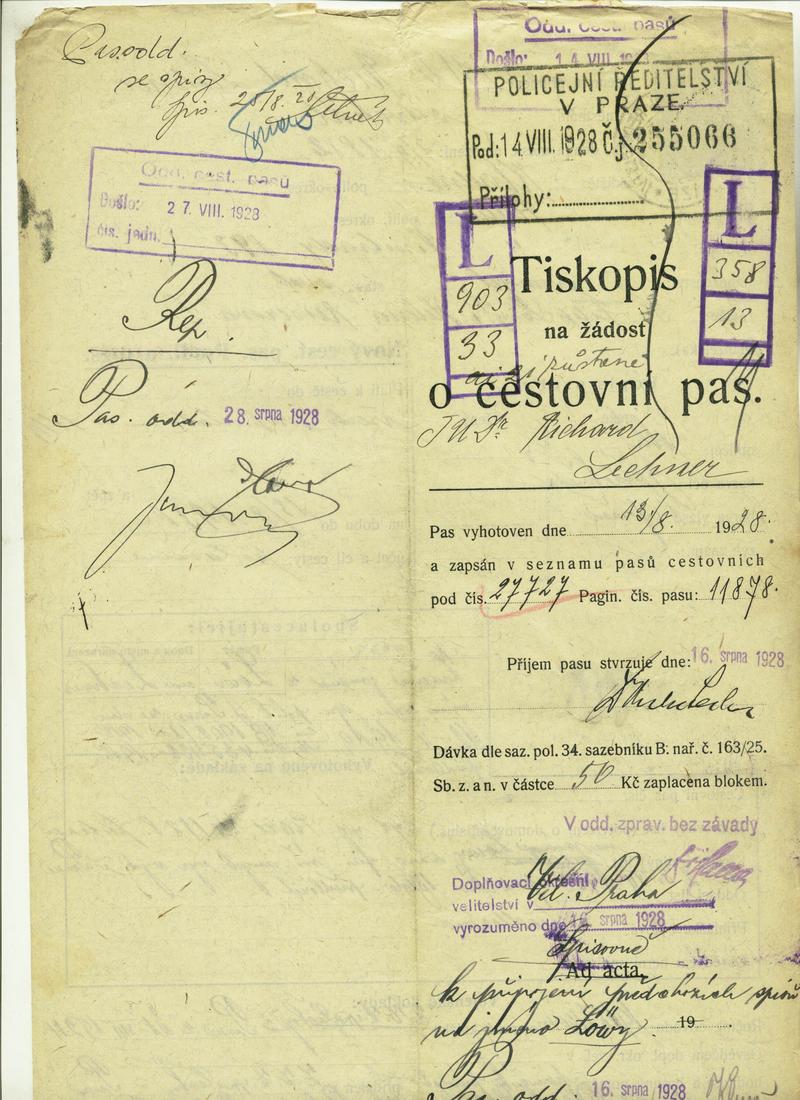 Pas. odd.
se spisy
28/8. 28
Odd. cest. pasů
Došlo: 27. VIII. 1928
čís. jedn.
Rep.
Pas. odd. 28. srpna 1928
Odd. cest. pasů
Došlo: 14 VIII. 1928
POLICEJNÍ ŘEDITELSTVÍ
V PRAZE
Pod: 14 VIII. 1928 Č.j. 255066
Přílohy:
L
903
33
L
358
13
Tiskopis
na žádost
o cestovní pas.
JUDr Richard
Lechner
Pas vyhotoven dne 13/8. 1928.
a zapsán v seznamu pasů cestovních
pod čís. 27727 Pagin. čís. pasu: 11878.
Příjem pasu stvrzuje dne: 16. srpna 1928
Dávka dle saz. pol. 34. sazebníku B: nař. č. 163/25.
Sb. z. a n. v částce 50 Kč zaplacena blokem.
V odd. zprav. bez závady
Doplňovací okresní
velitelství v Vel. Praha
vyrozuměno dne 16. srpna 1928
Spisovně
Ad acta.
k připojení předchozích spisů
na jméno Löwy. 19
Pas. odd. 16. srpna 1928